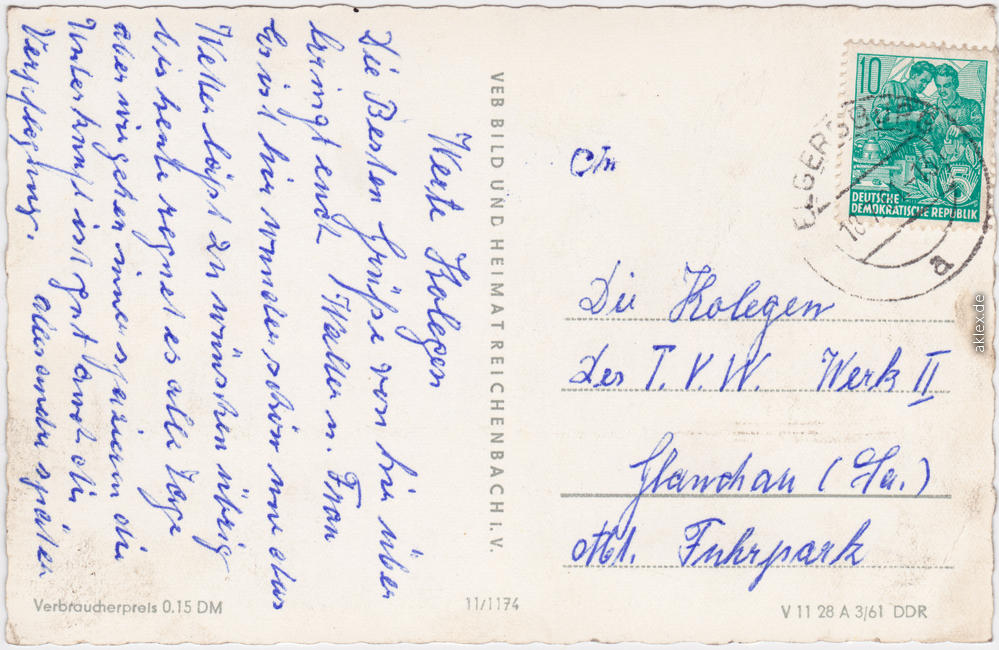 Werte Kolegen
Die Besten Grüße von hir über
bringt euch Walter u. Frau
Es ist hir wunderschön nur das
Wetter läst zu wünschen übrig
bis heute regnet es alle Tage
aber wir gehen immer spazieren die
Unterkunft ist gut auch die
Verpflegung. alles andre später
VEB BILD UND HEIMAT REICHENBACH i. V.
10
5
DEUTSCHE
DEMOKRATISCHE REPUBLIK
ELGERSBURG
18
a
An
Die Kolegen
des T. V. W. Werk II
Glauchau (Sa.)
Abt. Fuhrpark
Verbraucherpreis 0.15 DM
11/1174
V 11 28 A 3/61 DDR
aklex.de